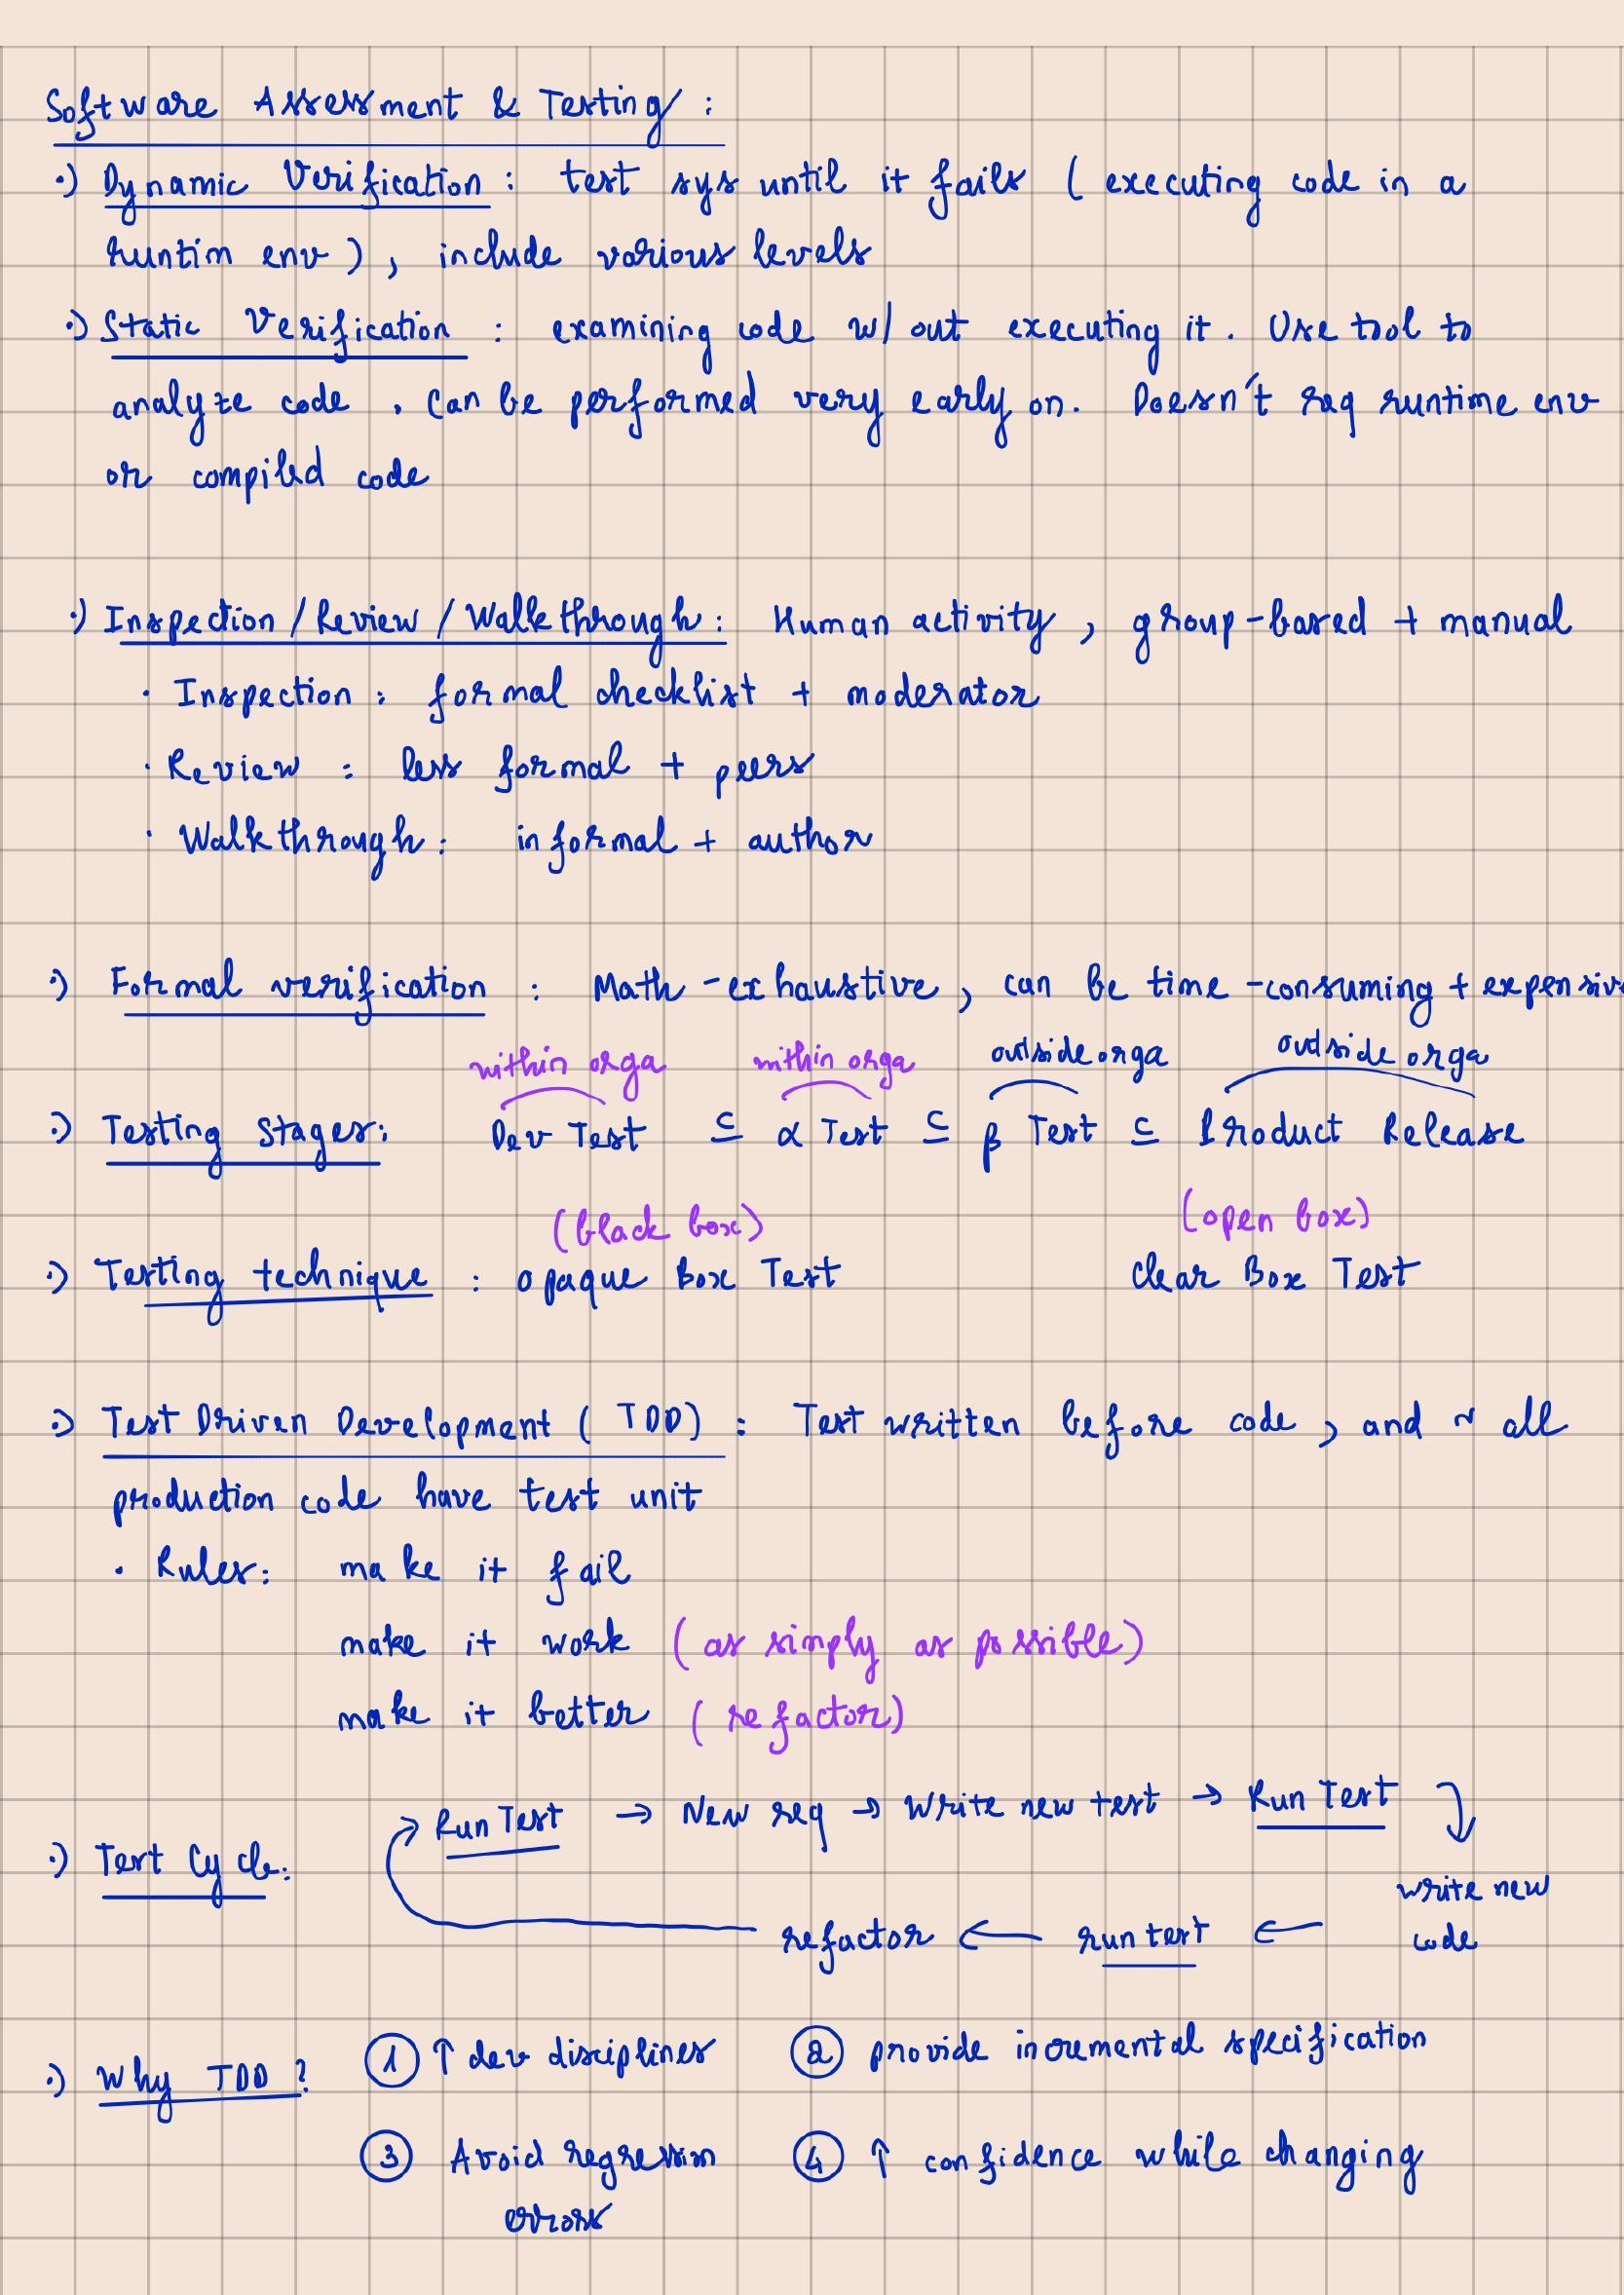 Software Assessment & Testing :
·) Dynamic Verification : test sys until it fails ( executing code in a
runtim env ) , include various levels
·) Static Verification : examining code w/ out executing it . Use tool to
analyze code . Can be performed very early on. Doesn't req runtime env
or compiled code
·) Inspection / Review / Walkthrough : Human activity , group-based + manual
· Inspection : formal checklist + moderator
· Review : less formal + peers
· Walkthrough : informal + author
·) Formal verification : Math - exhaustive , can be time - consuming + expensive
within orga within orga outside orga outside orga
·) Testing Stages : Dev Test ⊆ α Test ⊆ β Test ⊆ Product Release
(black box) (open box)
·) Testing technique : opaque Box Test clear Box Test
·) Test Driven Development ( TDD ) : Test written before code , and ~ all
production code have test unit
· Rules : make it fail
make it work ( as simply as possible )
make it better ( refactor )
Run Test → New req → Write new test → Run Test
·) Test Cycle :
write new
code
refactor ← run test ←
·) Why TDD ? ① ↑ dev disciplines ② provide incremental specification
③ Avoid regression ④ ↑ confidence while changing
errors